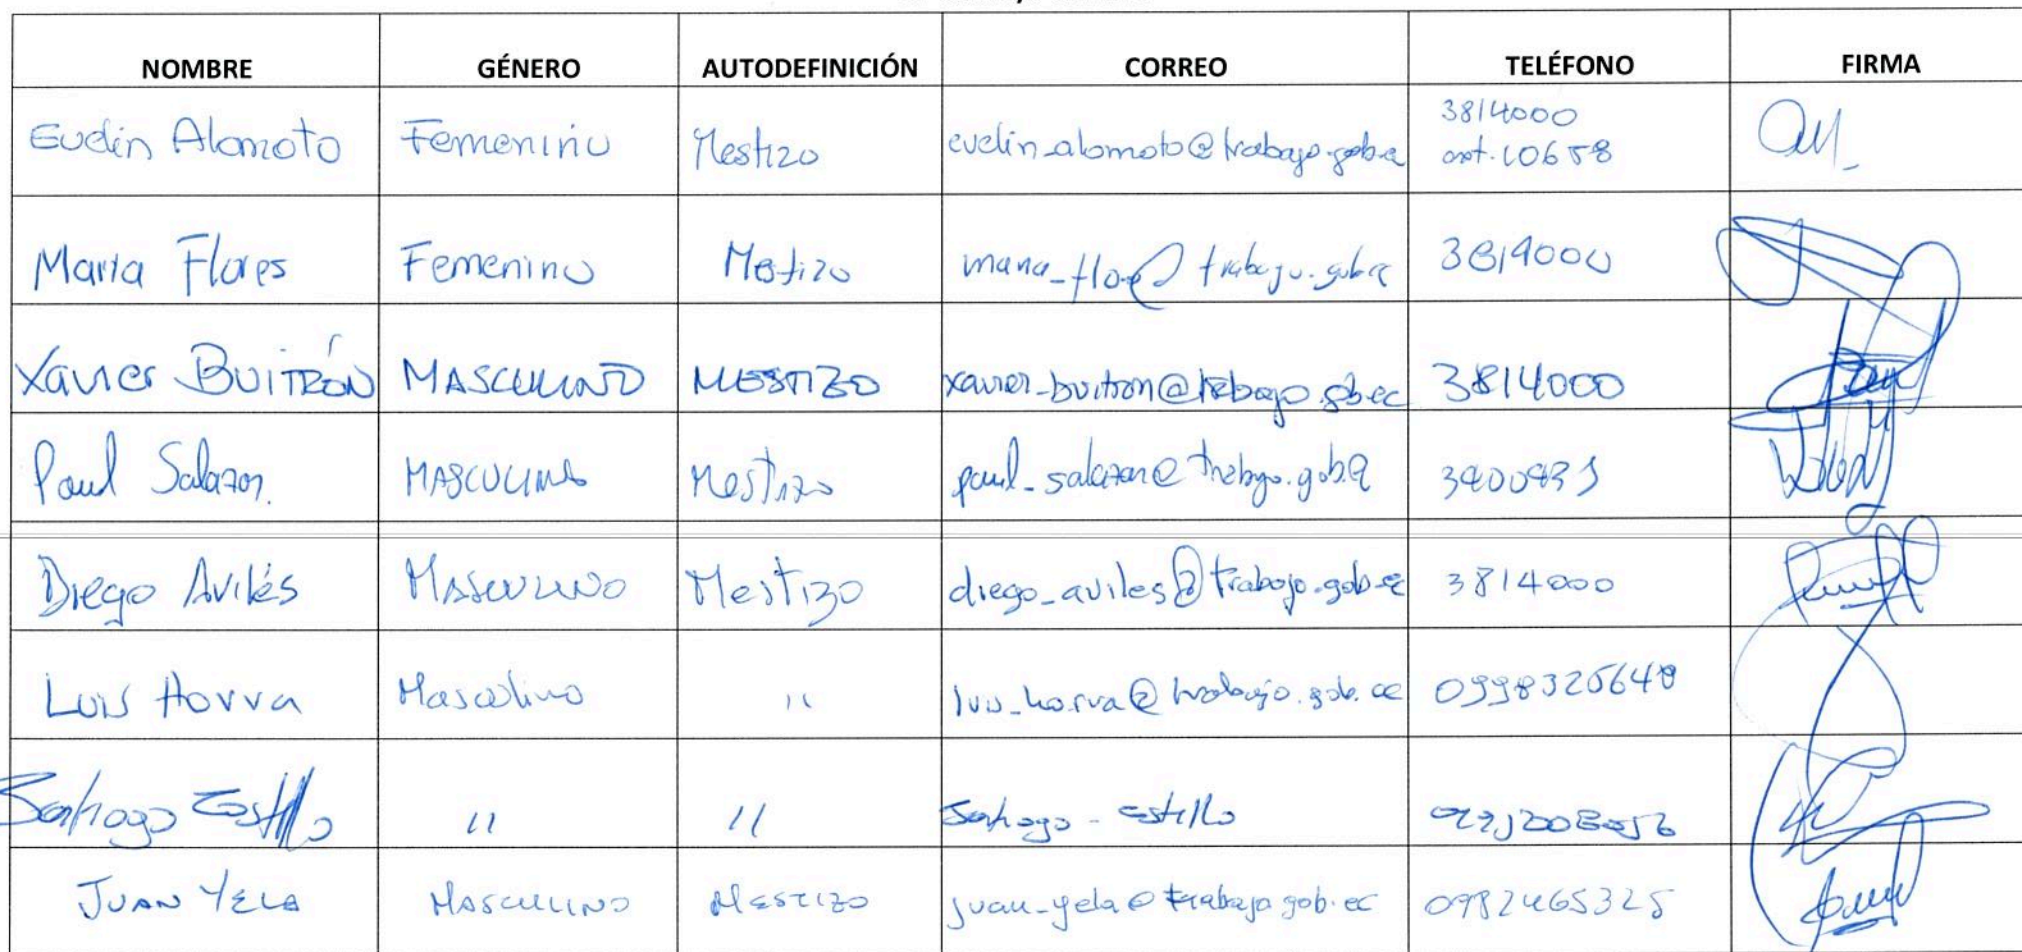 NOMBRE GÉNERO AUTODEFINICIÓN CORREO TELÉFONO FIRMA
Evelin Alomoto Femenino Mestizo evelin_alomoto@trabajo.gob.ec 3814000
ext. 10658
Maria Flores Femenino Mestizo maria_flores@trabajo.gob.ec 3814000
Xavier BUITRÓN MASCULINO MESTIZO xavier_buitron@trabajo.gob.ec 3814000
Paul Salazar. MASCULINO Mestizo paul_salazar@trabajo.gob.ec
Diego Avilés MASCULINO Mestizo diego_aviles@trabajo.gob.ec 3814000
Luis Horva Masculino " luis_horva@trabajo.gob.ec
Santiago Castillo " " Santiago - Castillo
JUAN YELA MASCULINO MESTIZO juan_yela@trabajo.gob.ec 0982465325